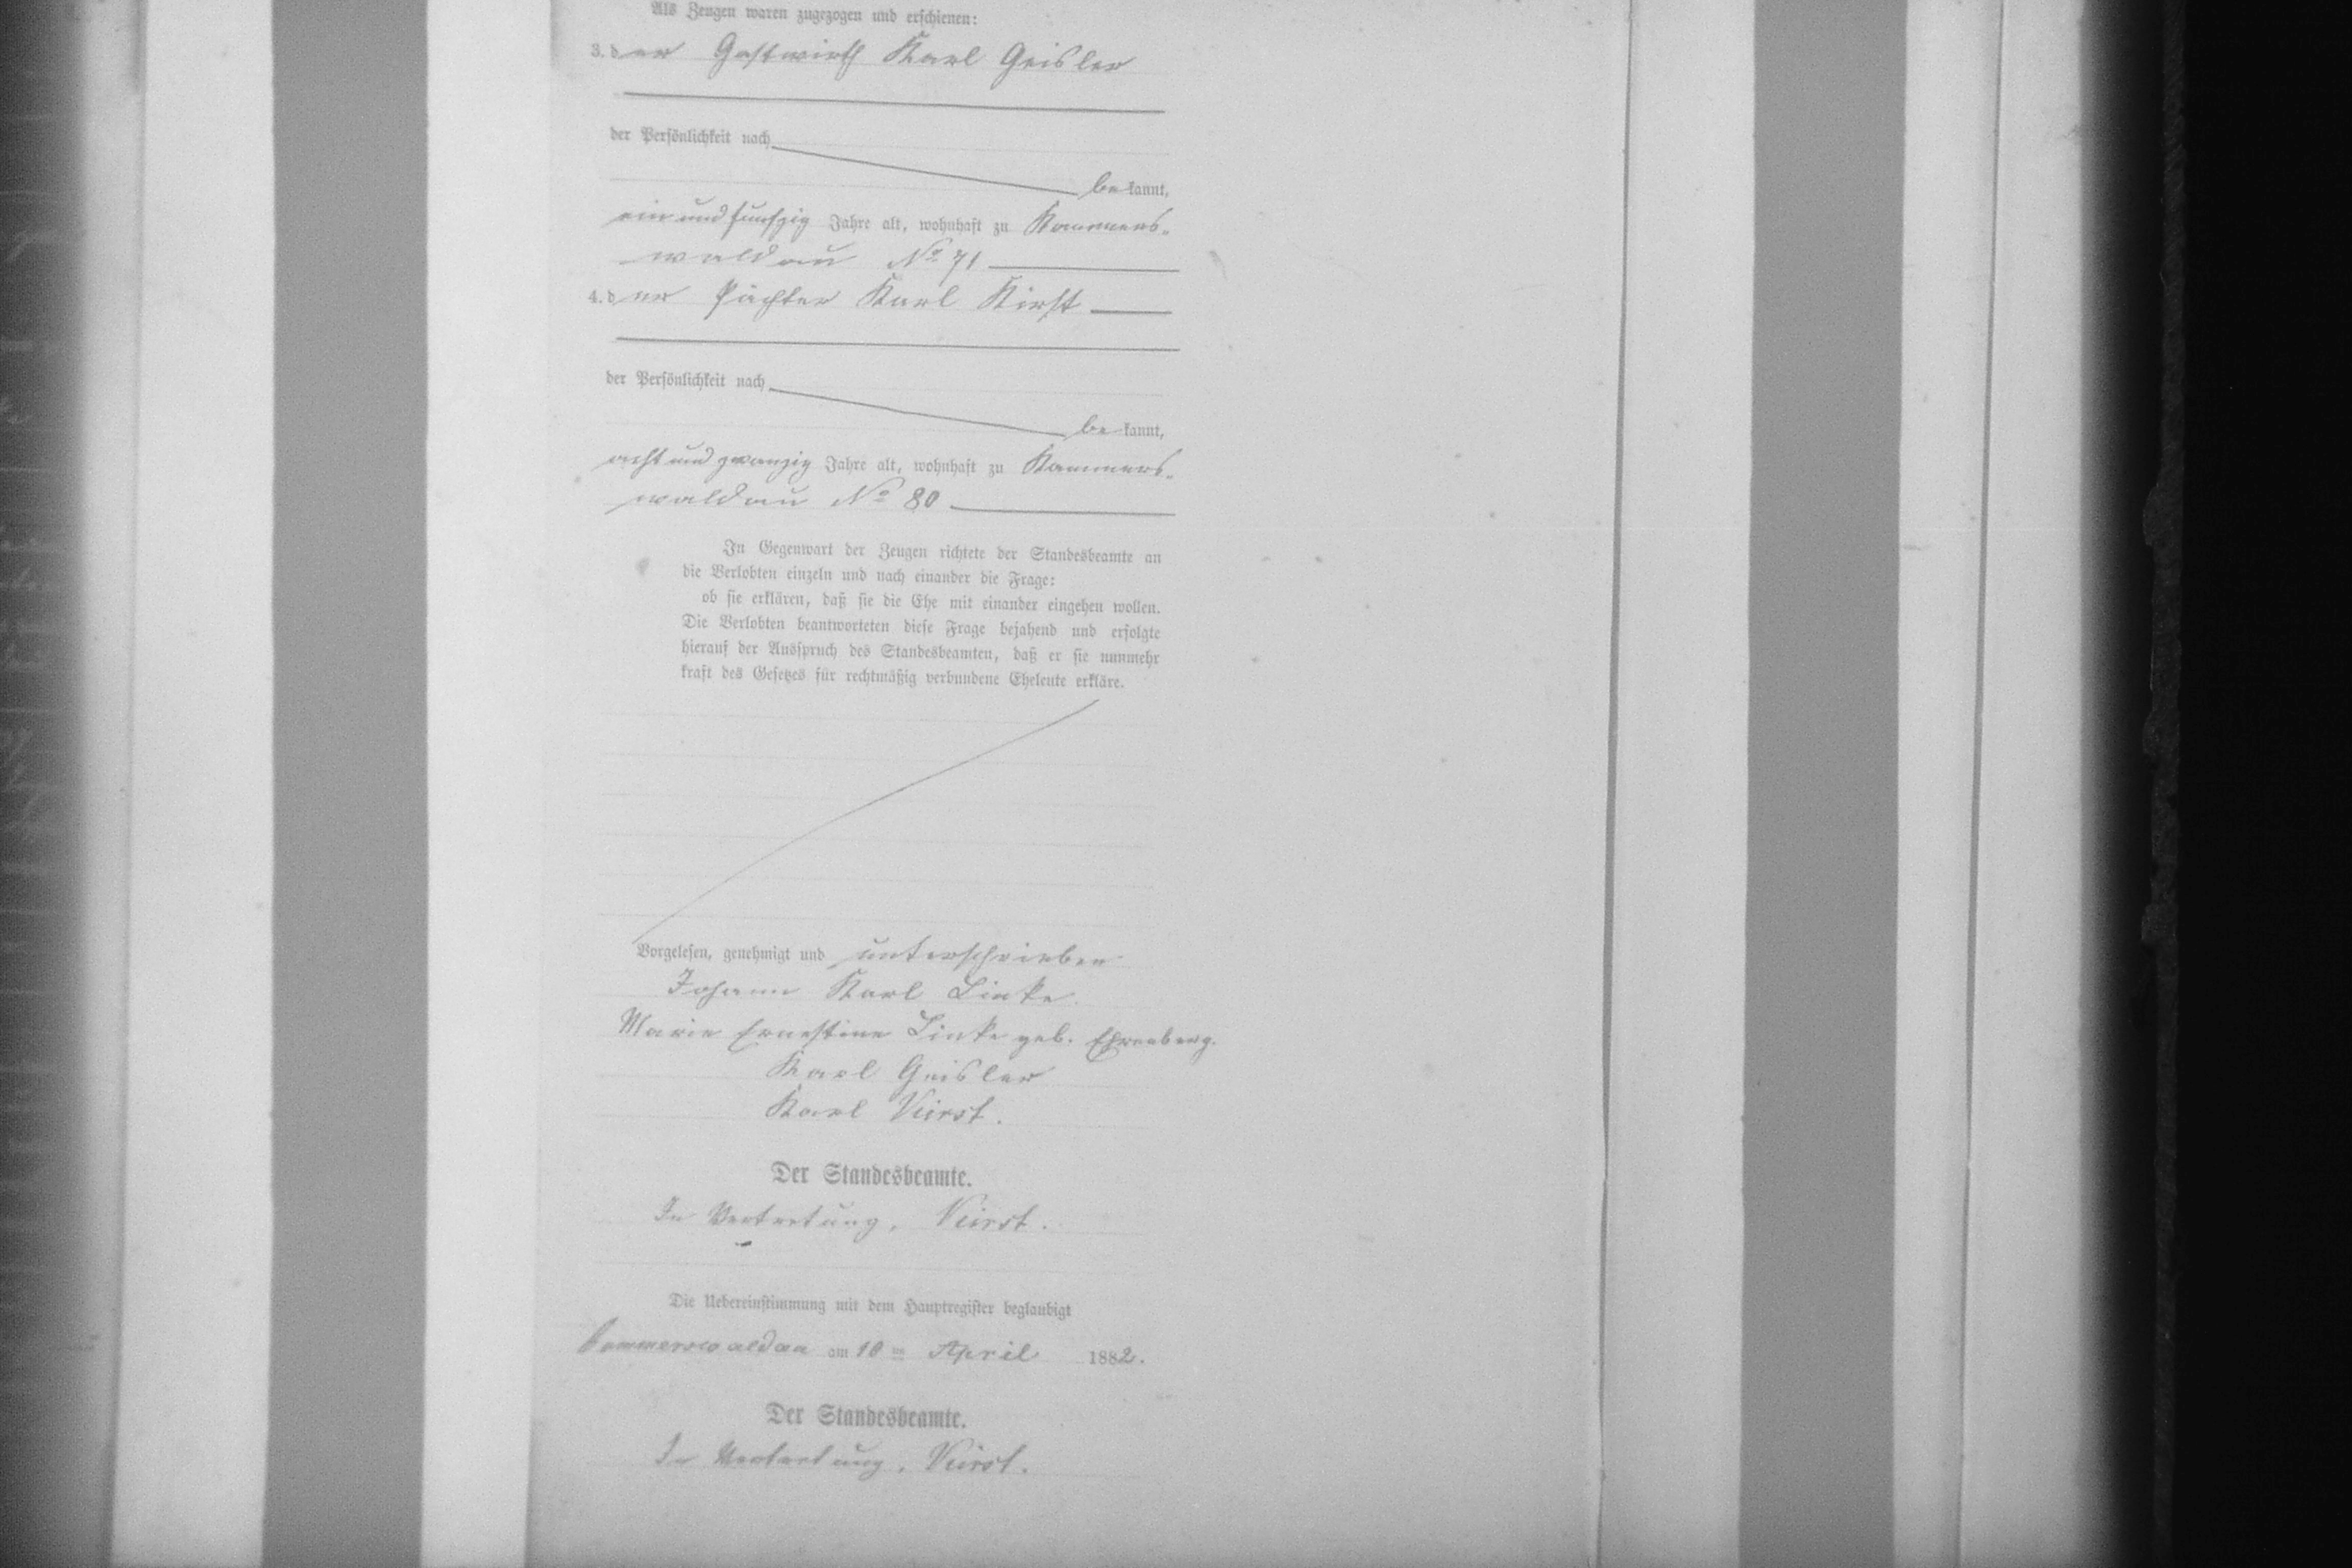 Als Zeugen waren zugezogen und erschienen:
3. der Gastwirth Karl Geisler
der Persönlichkeit nach
bekannt,
ein und funfzig Jahre alt, wohnhaft zu Kammers-
waldau No 71
4. der Pächter Karl Kirst
der Persönlichkeit nach
bekannt,
acht und zwanzig Jahre alt, wohnhaft zu Kammers-
waldau No 80
In Gegenwart der Zeugen richtete der Standesbeamte an
die Verlobten einzeln und nach einander die Frage:
ob sie erklären, daß sie die Ehe mit einander eingehen wollen.
Die Verlobten beantworteten diese Frage bejahend und erfolgte
hierauf der Ausspruch des Standesbeamten, daß er sie nunmehr
kraft des Gesetzes für rechtmäßig verbundene Eheleute erkläre.
Vorgelesen, genehmigt und unterschrieben
Johann Karl Linke.
Marie Ernestine Linke geb. Ehrenberg.
Karl Geisler
Karl Kirst.
Der Standesbeamte.
In Vertretung, Kirst.
Die Uebereinstimmung mit dem Hauptregister beglaubigt
Kammerswaldau am 10 ten April 1882.
Der Standesbeamte.
In Vertretung, Kirst.